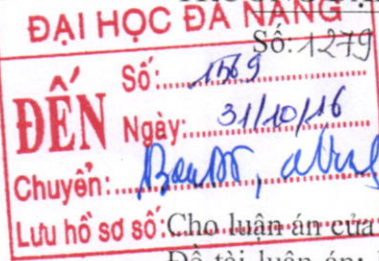 ĐẠI HỌC ĐÀ NẴNG
Số: 1279
ĐẾN
Số: 1569
Ngày: 31/10/16
Chuyển:
Lưu hồ sơ số:
Cho luận án của
Đề tài luận án: